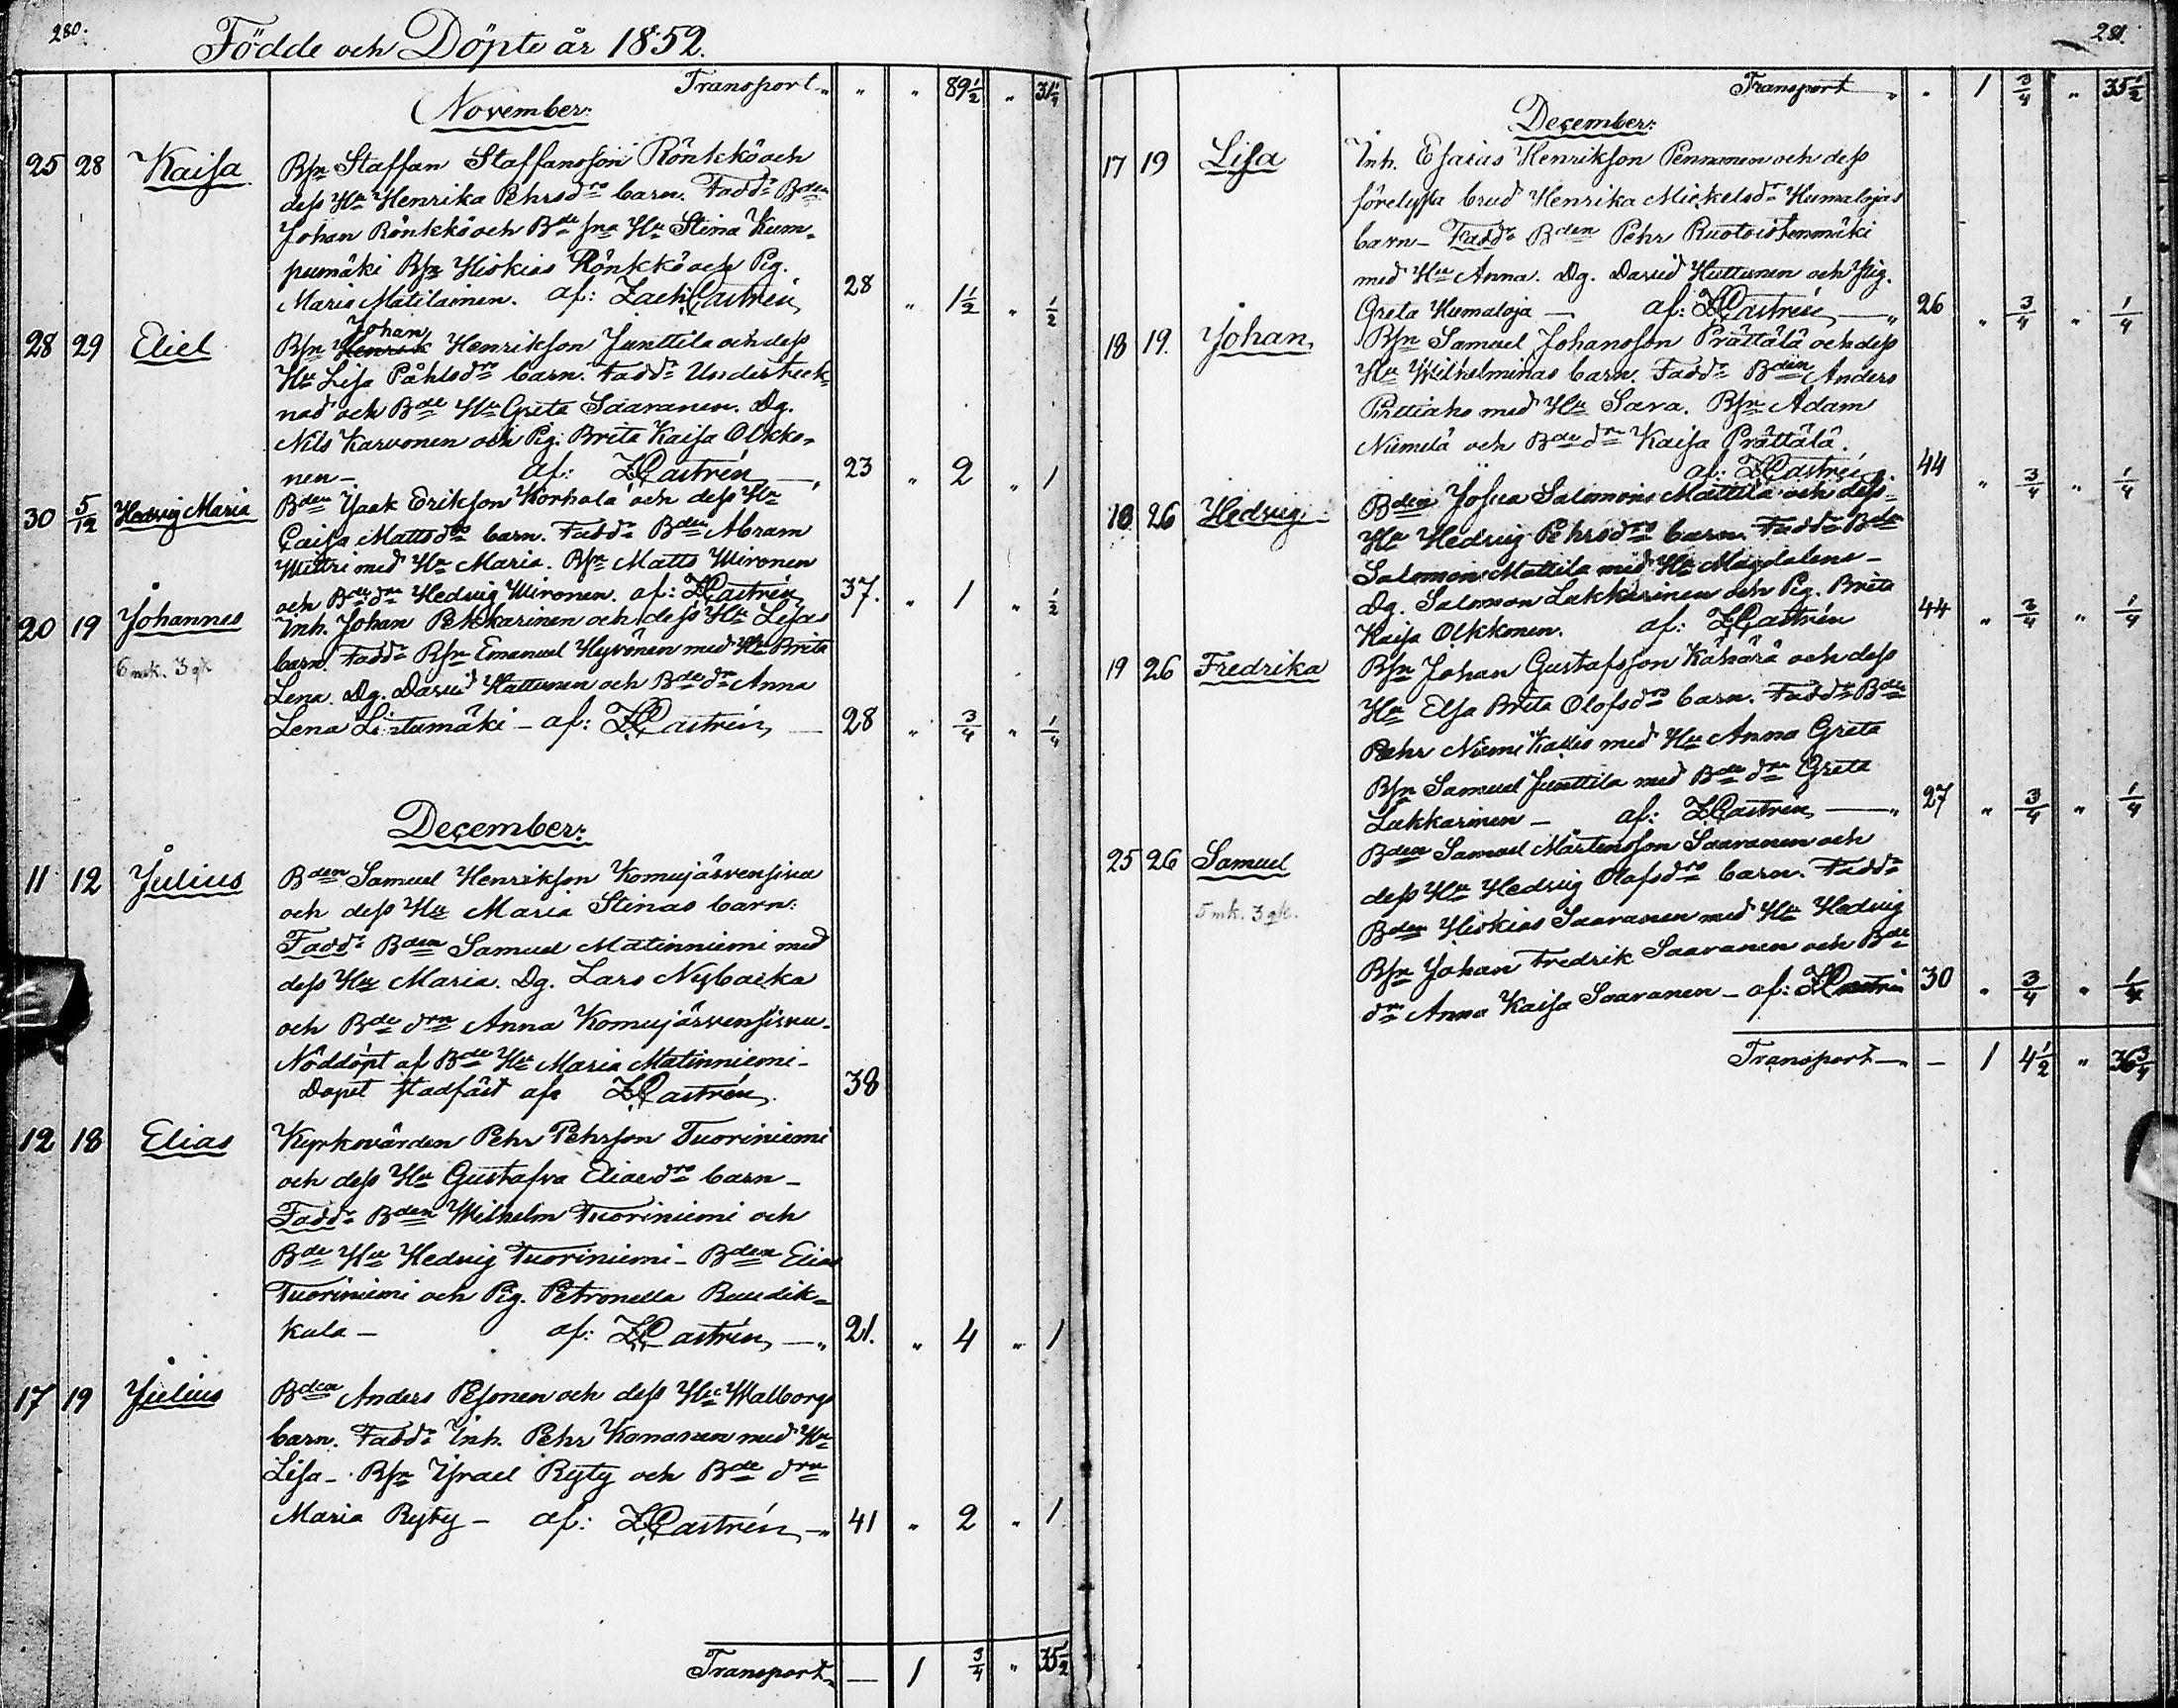 280.
Födde och Döpte år 1852.
Transport „ „ „ 89½ „ 31¼
November:
25 28 Kaisa Bsn Staffan Staffansson Rönkkö och
dess Hu Henrika Pehrsdrs barn. Faddr Bden
Johan Rönkkö och Bde sna Hu Stina Kum-
pumäki Bsn Hiskias Rönkkö och Pig.
Maria Matilainen. af: Zach: Castrén 28 „ 1½ „ ½
28 29 Eliel Bsn Johan Henrik Henriksson Junttila och dess
Hu Lisa Påhlsdrs barn. Faddr Underteck-
nad och Bde Hu Greta Saaranen. Dg.
Nils Karvonen och Pig. Brita Kaisa Olkko-
nen – af: Z.Castrén 23 „ 2 „ 1
30 5/12 Hedvig Maria Bden Isak Eriksson Korhola och dess Hu
Caisa Mattsdrs barn. Faddr Bden Abram
Wittri med Hu Maria. Bsn Matts Mironen
och Bde drn Hedvig Mironen. af: Z.Castrén 37. „ 1 „ ½
20 19 Johannes Inh. Johan Pekkarinen och dess Hu Lisas
6 mk. 3 gk barn. Faddr Bsn Emanuel Hyvönen med Hu Brita
Lena. Dg. David Huttunen och Bde drn Anna
Lena Lintumäki – af: Z.Castrén – 28 „ ¾ „ ¼
December:
11 12 Julius Bden Samuel Henriksson Komujärvensivu
och dess Hu Maria Stinas barn:
Faddr Bden Samuel Matinniemi med
dess Hu Maria. Dg. Lars Nybacka
och Bde drn Anna Komujärvensivu.
Nöddöpt af Bde Hu Maria Matinniemi –
Dopet stadfäst af: Z.Castrén. 38
12 18 Elias Kyrkovärden Pehr Pehrsson Tuoriniemi
och dess Hu Gustafva Eliaedrs barn –
Faddr Bden Wilhelm Tuoriniemi och
Bde Hu Hedvig Tuoriniemi – Bden Elias
Tuoriniemi och Pig. Petronella Buudik-
kala – af: Z.Castrén – „ 21. „ 4 „ 1
17 19 Julius Bden Anders Pesonen och dess Hu Walborgs
barn. Faddr Inh. Pehr Komonen med Hu
Lisa – Bsn Israel Ryty och Bde drn
Maria Ryty – af: Z.Castrén – „ 41 „ 2 „ 1
Transport „ — 1 ¾ „ 35½
281.
Transport „ „ 1 ¾ „ 35½
December:
17 19 Lisa Inh. Esaias Henriksson Pennanen och dess
förelysta brud Henrika Mickelsdr Humalojas
barn – Faddr Bden Pehr Ruotoistenmäki
med Hu Anna. Dg. David Huttunen och Pig.
Greta Humaloja — af: Z.Castrén — „ 26 „ ¾ „ ¼
18 19. Johan Bsn Samuel Johansson Prättälä och dess
Hu Wilhelminas barn. Faddr Bden Anders
Pirttiaho med Hu Sara. Bsn Adam
Niemelä och Bde drn Kaisa Prättälä.
af: Z.Castrén 44 „ ¾ „ ¼
18 26 Hedvig Bden Josua Salomons Mattila och dess
Hu Hedvig Pehrsdrs barn. Faddr Bdn
Salomon Mattila med Hu Magdalena –
Dg. Salomon Lukkarinen och Pig. Brita
Kaisa Olkkonen. af: Z.Castrén 44 „ ¾ „ ¼
19 26 Fredrika Bsn Johan Gustafsson Kähärä och dess
Hu Elsa Brita Olofsdrs barn. Faddr Bden
Pehr Niemi med Hu Anna Greta
Bsn Samuel Junttila med Bde drn Greta
Lukkarinen – af: Z.Castrén — „ 27 „ ¾ „ ¼
25 26 Samuel Bden Samuel Mårtensson Saaranen och
dess Hu Hedvig Olofsdrs barn. Faddr
5 mk. 3 gk. Bden Hiskias Saaranen med Hu Hedvig
Bsn Johan Fredrik Saaranen och Bde
drn Anna Kaisa Saaranen – af: Z.Castrén 30 „ ¾ „ ¼
Transport — „ — 1 4½ „ 36¾